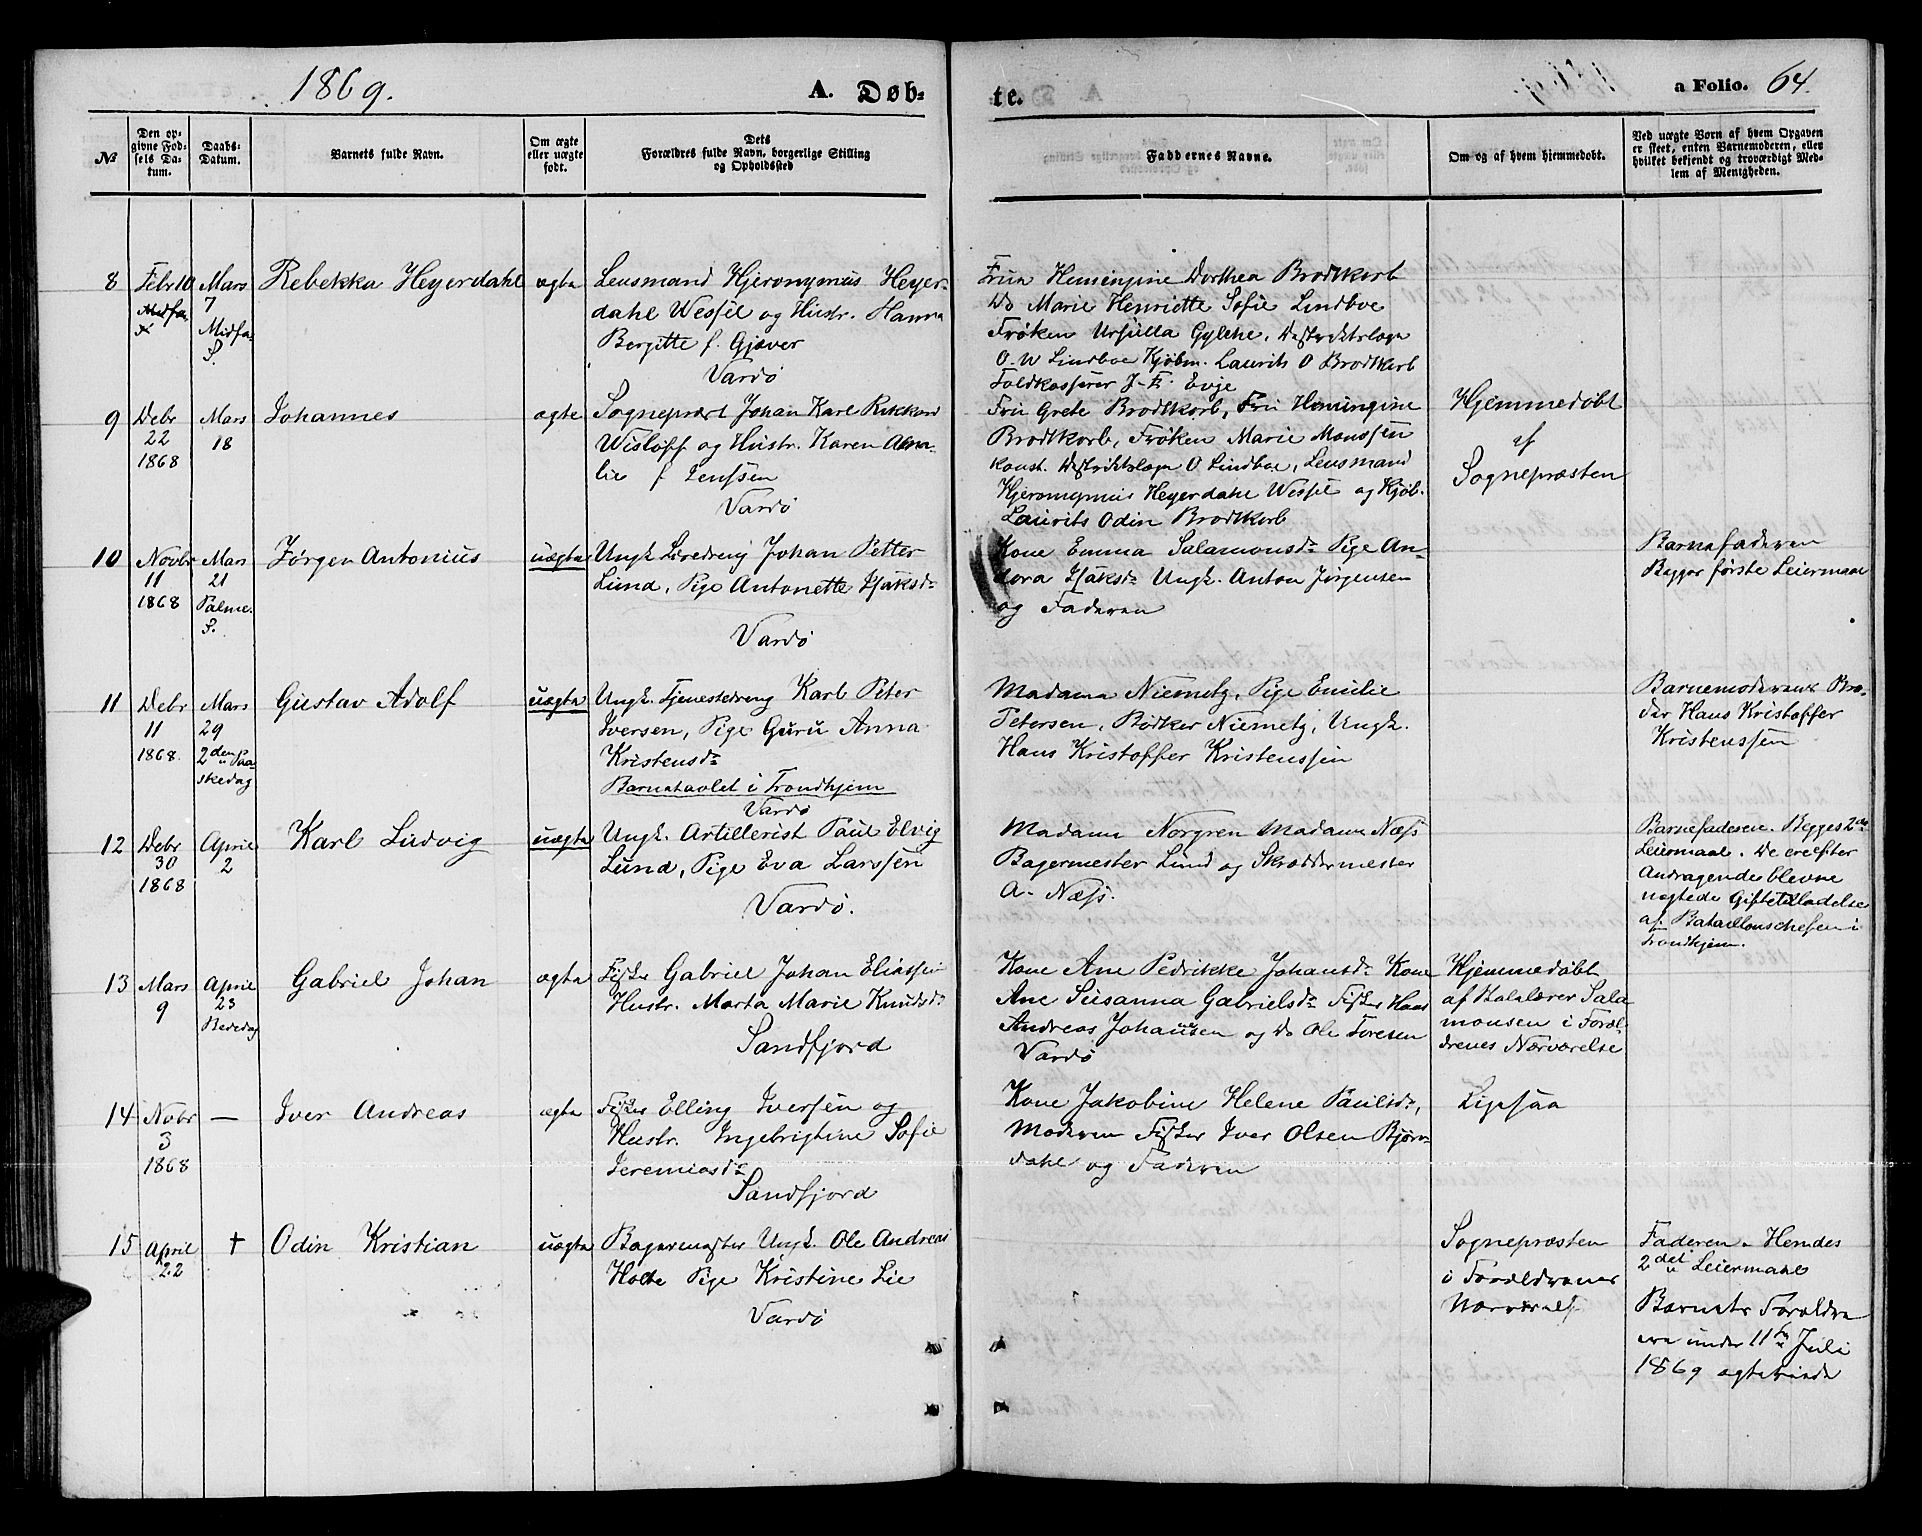 1869.
A. Døb-
te.
a Folio. 64.
№
Den op-
givne Fød-
sels Da-
tum.
Daabs-
Datum.
Barnets fulde Navn.
Om ægte
eller uægte
født.
Dets
Forældres fulde Navn, borgerlige Stilling
og Opholdssted
Faddernes Navne.
Om og af hvem hjemmedøbt.
Ved uægte Børn af hvem Opgaven
er skeet, enten Barnemoderen, eller
hvilket bekjendt og troværdigt Med-
lem af Menigheden.
8
Febr 10
Mars
7
Midfa-
S.
Rebekka Heyerdahl
ægte
Lensmand Hjeronymus Heyer-
dahl Wessel og Hustr. Hanna
Bergitte f. Gjæver
Vardø
Frua Henningine Dorthea Brodtkorb
Do Marie Henriette Sofie Lindboe
Frøken Ursulla Gylche. Destriktslæge
O. W Lindboe Kjøbm. Laurits O Brodtkorb
Toldkasserer J. F. Evje
9
Debr
22
1868
Mars
18
Johannes
ægte
Sognepræst Johan Karl Rikkard
Wisløff og Hustr. Karen Ama-
lie f Jenssen
Vardø
Fru Grete Brodtkorb, Fru Henningine
Brodtkorb, Frøken Marie Monssen
konst. Destriktslæge O Lindboe, Lensmand
Hjeronymus Heyerdahl Wessel og Kjøb.
Laurits Odin Brodtkorb
Hjemmedøbt
af
Sognepræsten
10
Novbr
11
1868
Mars
21
Palme.
S.
Jørgen Antonius
uægte
Ungk. Læredreng Johan Petter
Lund, Pige Antonette Isaksdr
Vardø
Kone Emma Salamonsdr Pige An-
dora Isaksdr Ungk. Anton Jørgensen
og Faderen
Barnefaderen
Begges første Leiermaal
11
Debr
11
1868.
Mars
29
2den Paa
skedag
Gustav Adolf
uægte
Ungk. Tjenestedreng Karl Peter
Iversen, Pige Guru Anna
Kristensdr
Barnetavlet i Trondhjem
Vardø
Madama Niemetz, Pige Emilie
Petersen, Bødker Niemetz, Ungk.
Hans Kristoffer Kristenssen
Barnemoderens Bro-
der Hans Kristoffer
Kristenssen
12
Debr
30
1868
April
2
Karl Ludvig
uægte
Ungk. Artillerist Paul Elvig
Lund, Pige Eva Larssen
Vardø.
Madama Norgren Madama Næss
Bagermester Lund og Skræddermester
A. Næss.
Barnefaderen. Begges 2de
Leiermaal. De ere efter
Andragende blevne
nægtede Giftetilladelse
af Bataillonschefen i
Trondhjem.
13
Mars
9
April
23
Bededag
Gabriel Johan
ægte
Fisker Gabriel Johan Eliassen
Hustr. Marta Marie Knudsdr
Sandfjord
Kone Ane Pedrikke Johansdr Kone
Ane Susanna Gabrielsdr Fisker Hans
Andreas Johansen og Do Ole Toresen
Vardø
Hjemmedøbt
af Skolelærer Sala
monsen i Foræl-
drenes Nærværelse
14
Nobr
3
1868
—
Iver Andreas
ægte
Fisker Elling Iversen og
Hustr. Ingebrigtine Sofie
Jeremiasdr
Sandfjord
Kone Jakobine Helene Paulsdr,
Moderen Fisker Iver Olsen Bjørn-
dahl og Faderen
Ligesaa
15
April
22
†
Odin Kristian
uægte
Bagermester Ungk. Ole Andreas
Holte Pige Kristine Lie
Vardø
Sognepræsten
i Forældrenes
Nærværelse
Faderen. Hendes
2det Leiermaal
Barnets Forældre
ere under 11te Juli
1869 ægteviede